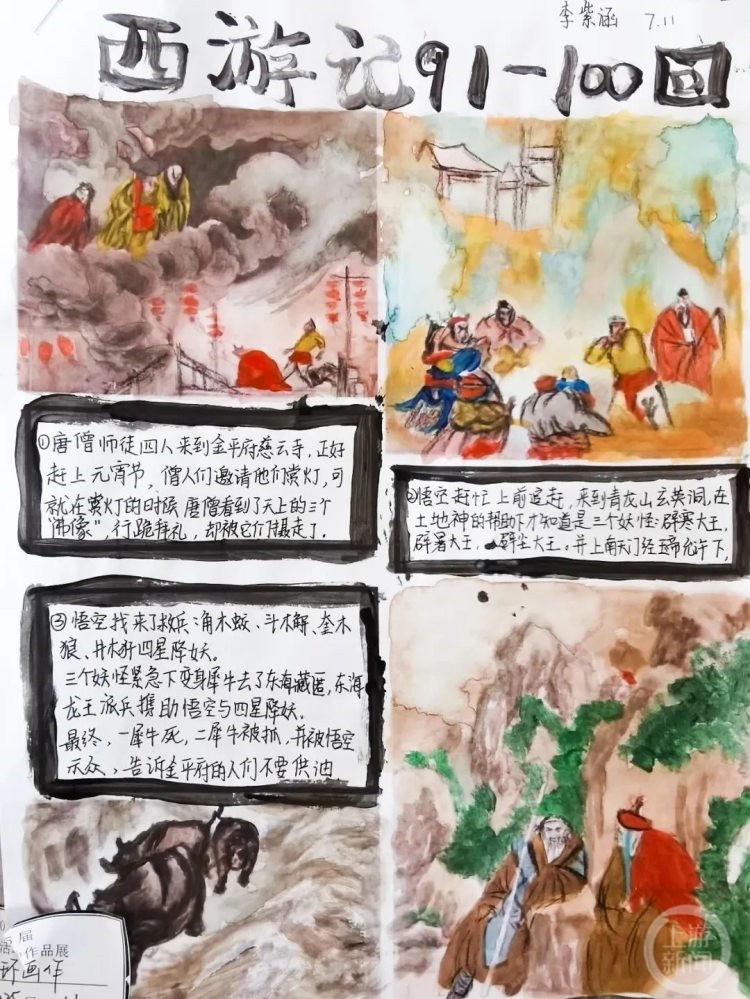 李紫涵 7.11
西游记91-100回
①唐僧师徒四人来到金平府慈云寺,正好
赶上元宵节,僧人们邀请他们赏灯,可
就在赏灯的时候唐僧看到了天上的三个
"佛像",行跪拜礼,却被它们摄走了.
②悟空赶忙上前追赶,来到青龙山玄英洞,在
土地神的帮助下才知道是三个妖怪:辟寒大王,
辟暑大王,辟尘大王.并上南天门经玉帝允许下,
③悟空找来了救兵:角木蛟、斗木獬、奎木
狼、井木犴四星降妖.
三个妖怪紧急下变身犀牛去了东海藏匿,东海
龙王派兵携助悟空与四星降妖.
最终,一犀牛死,二犀牛被抓,并被悟空
示众,告诉金平府的人们不要供油
届
作品展
环画作
上游新闻